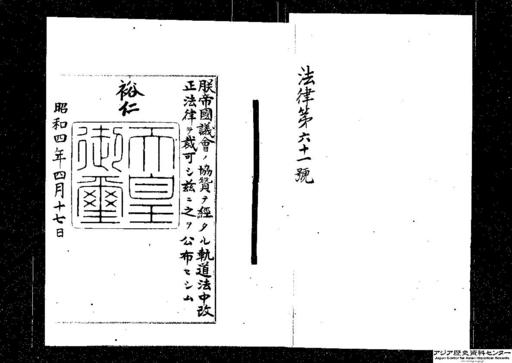 法律第六十一號
朕帝國議會ノ協贊ヲ經タル軌道法中改
正法律ヲ裁可シ茲ニ之ヲ公布セシム
裕仁
天皇
御璽
昭和四年四月十七日
アジア歴史資料センター
Japan Center for Asian Historical Records